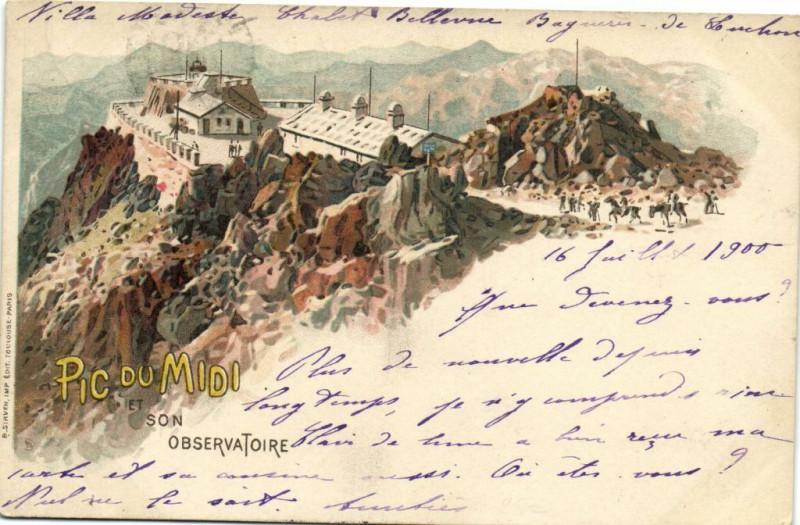 Villa Modeste Chalet Bellevue Bagnères-de Luchon
16 Juillet 1900
Que devenez-vous?
Plus de nouvelle depuis
longtemps, je n'y comprends rien
Clair de lune a bien reçu ma
carte et sa cousine aussi. Où êtes-vous?
Nul ne le sait.
PIC DU MIDI
ET
SON
OBSERVATOIRE
B. SIRVEN, IMP. EDIT. TOULOUSE-PARIS